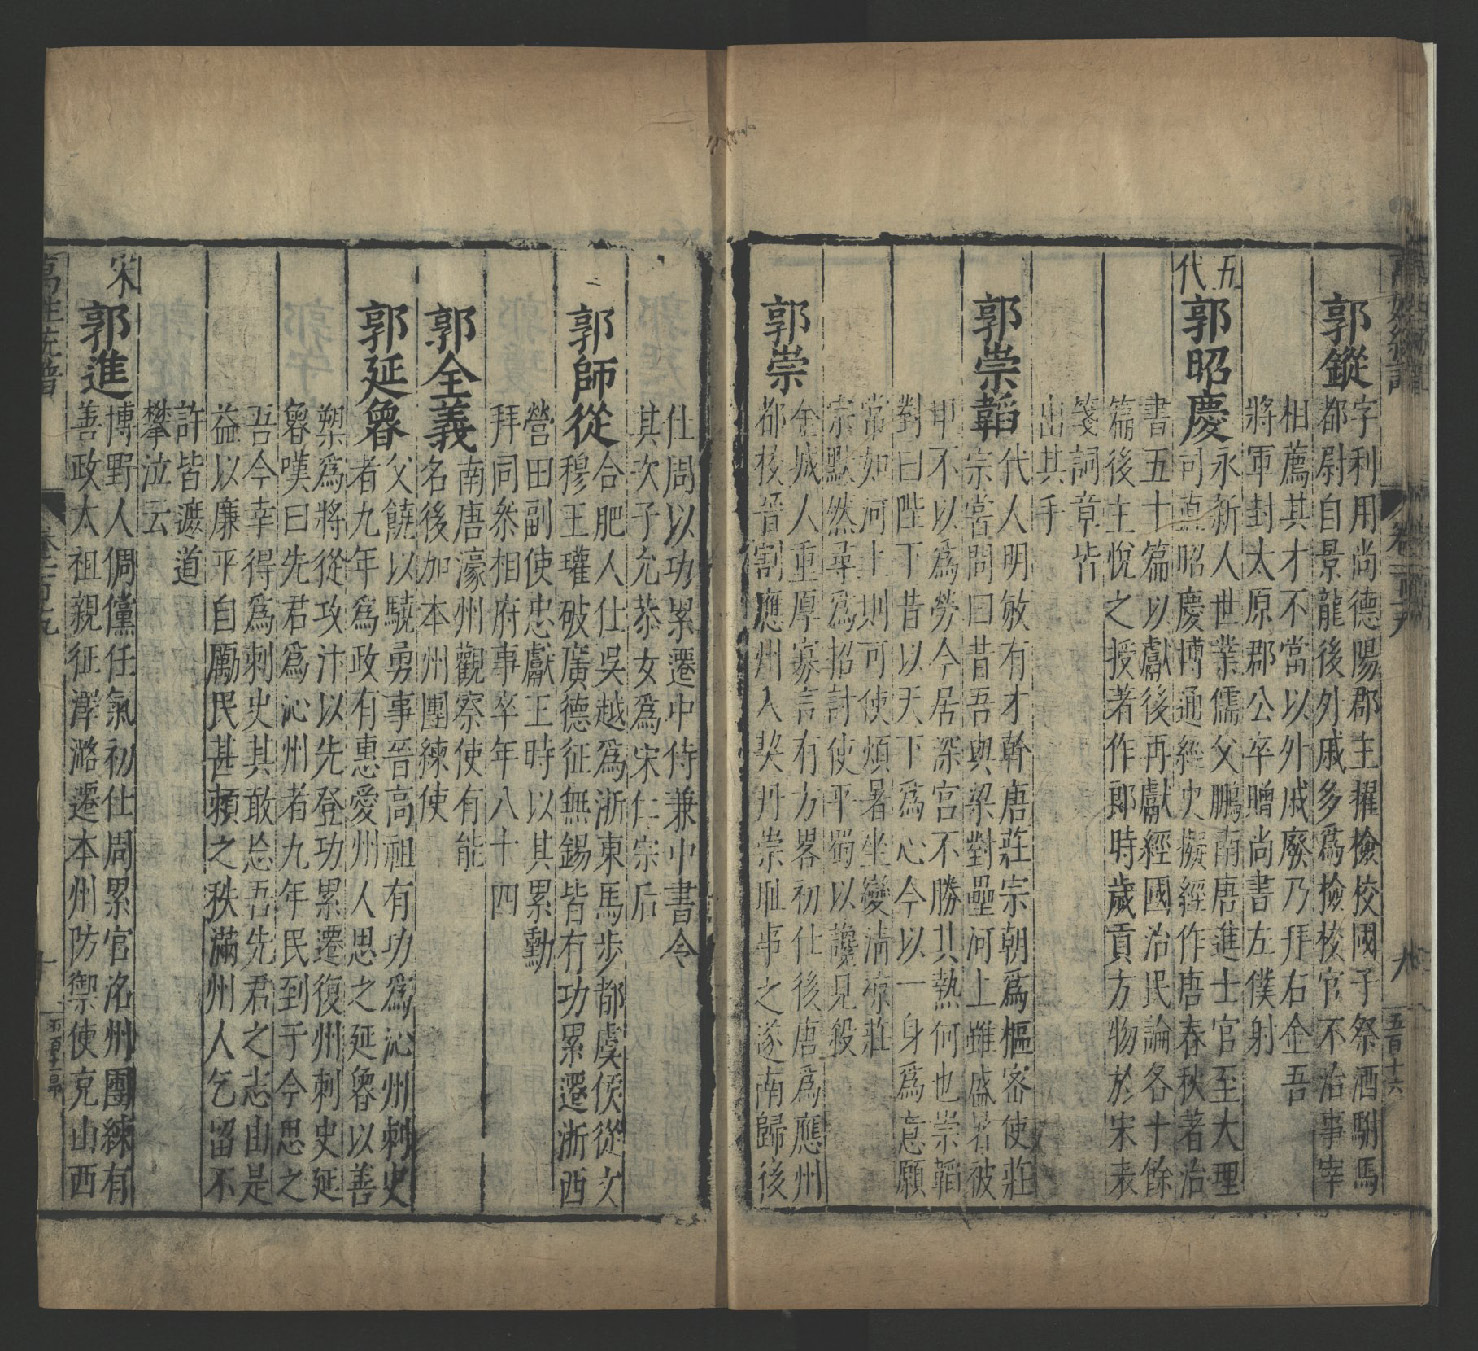 郭鏦
字利用尚德陽郡主擢檢校國子祭酒駙馬
都尉自景龍後外戚多爲檢校官不治事宰
相薦其才不當以外戚廢乃拜右金吾
將軍封太原郡公卒贈尚書左僕射
五代
郭昭慶
永新人世業儒父鵬南唐進士官至大理
司直昭慶博通經史擬經作唐春秋著治
書五十篇以獻後再獻經國治民論各十餘
篇後主悅之授著作郎時歲貢方物於宋表
箋詞章皆
出其手
郭崇韜
代人明敏有才幹唐莊宗朝爲樞密使莊
宗嘗問曰昔吾與梁對壘河上雖盛暑被
甲不以爲勞今居深宮不勝其熱何也崇韜
對曰陛下昔以天下爲心今以一身爲意願
常如河上則可使煩暑坐變清凉莊
宗默然尋爲招討使平蜀以讒見殺
郭崇
金城人重厚寡言有方畧初仕後唐爲應州
都校晉割應州入契丹崇耻事之遂南歸後
仕周以功累遷中侍兼中書令
其次子允恭女爲宋仁宗后
郭師從
合肥人仕吳越爲浙東馬步都虞候從文
穆王瓘破廣德征無錫皆有功累遷浙西
營田副使忠獻王時以其累勳
拜同叅相府事卒年八十四
郭全義
南唐濠州觀察使有能
名後加本州團練使
郭延魯
父饒以驍勇事晉高祖有功爲沁州刺史
者九年爲政有惠愛州人思之延魯以善
槊爲將從攻汴以先登功累遷復州刺史延
魯嘆曰先君爲沁州者九年民到于今思之
吾今幸得爲刺史其敢忘吾先君之志由是
益以廉平自勵民甚賴之秩滿州人乞留不
許皆遮道
攀泣云
宋
郭進
博野人倜儻任氣初仕周累官洺州團練有
善政太祖親征澤潞遷本州防禦使充山西
萬姓統譜